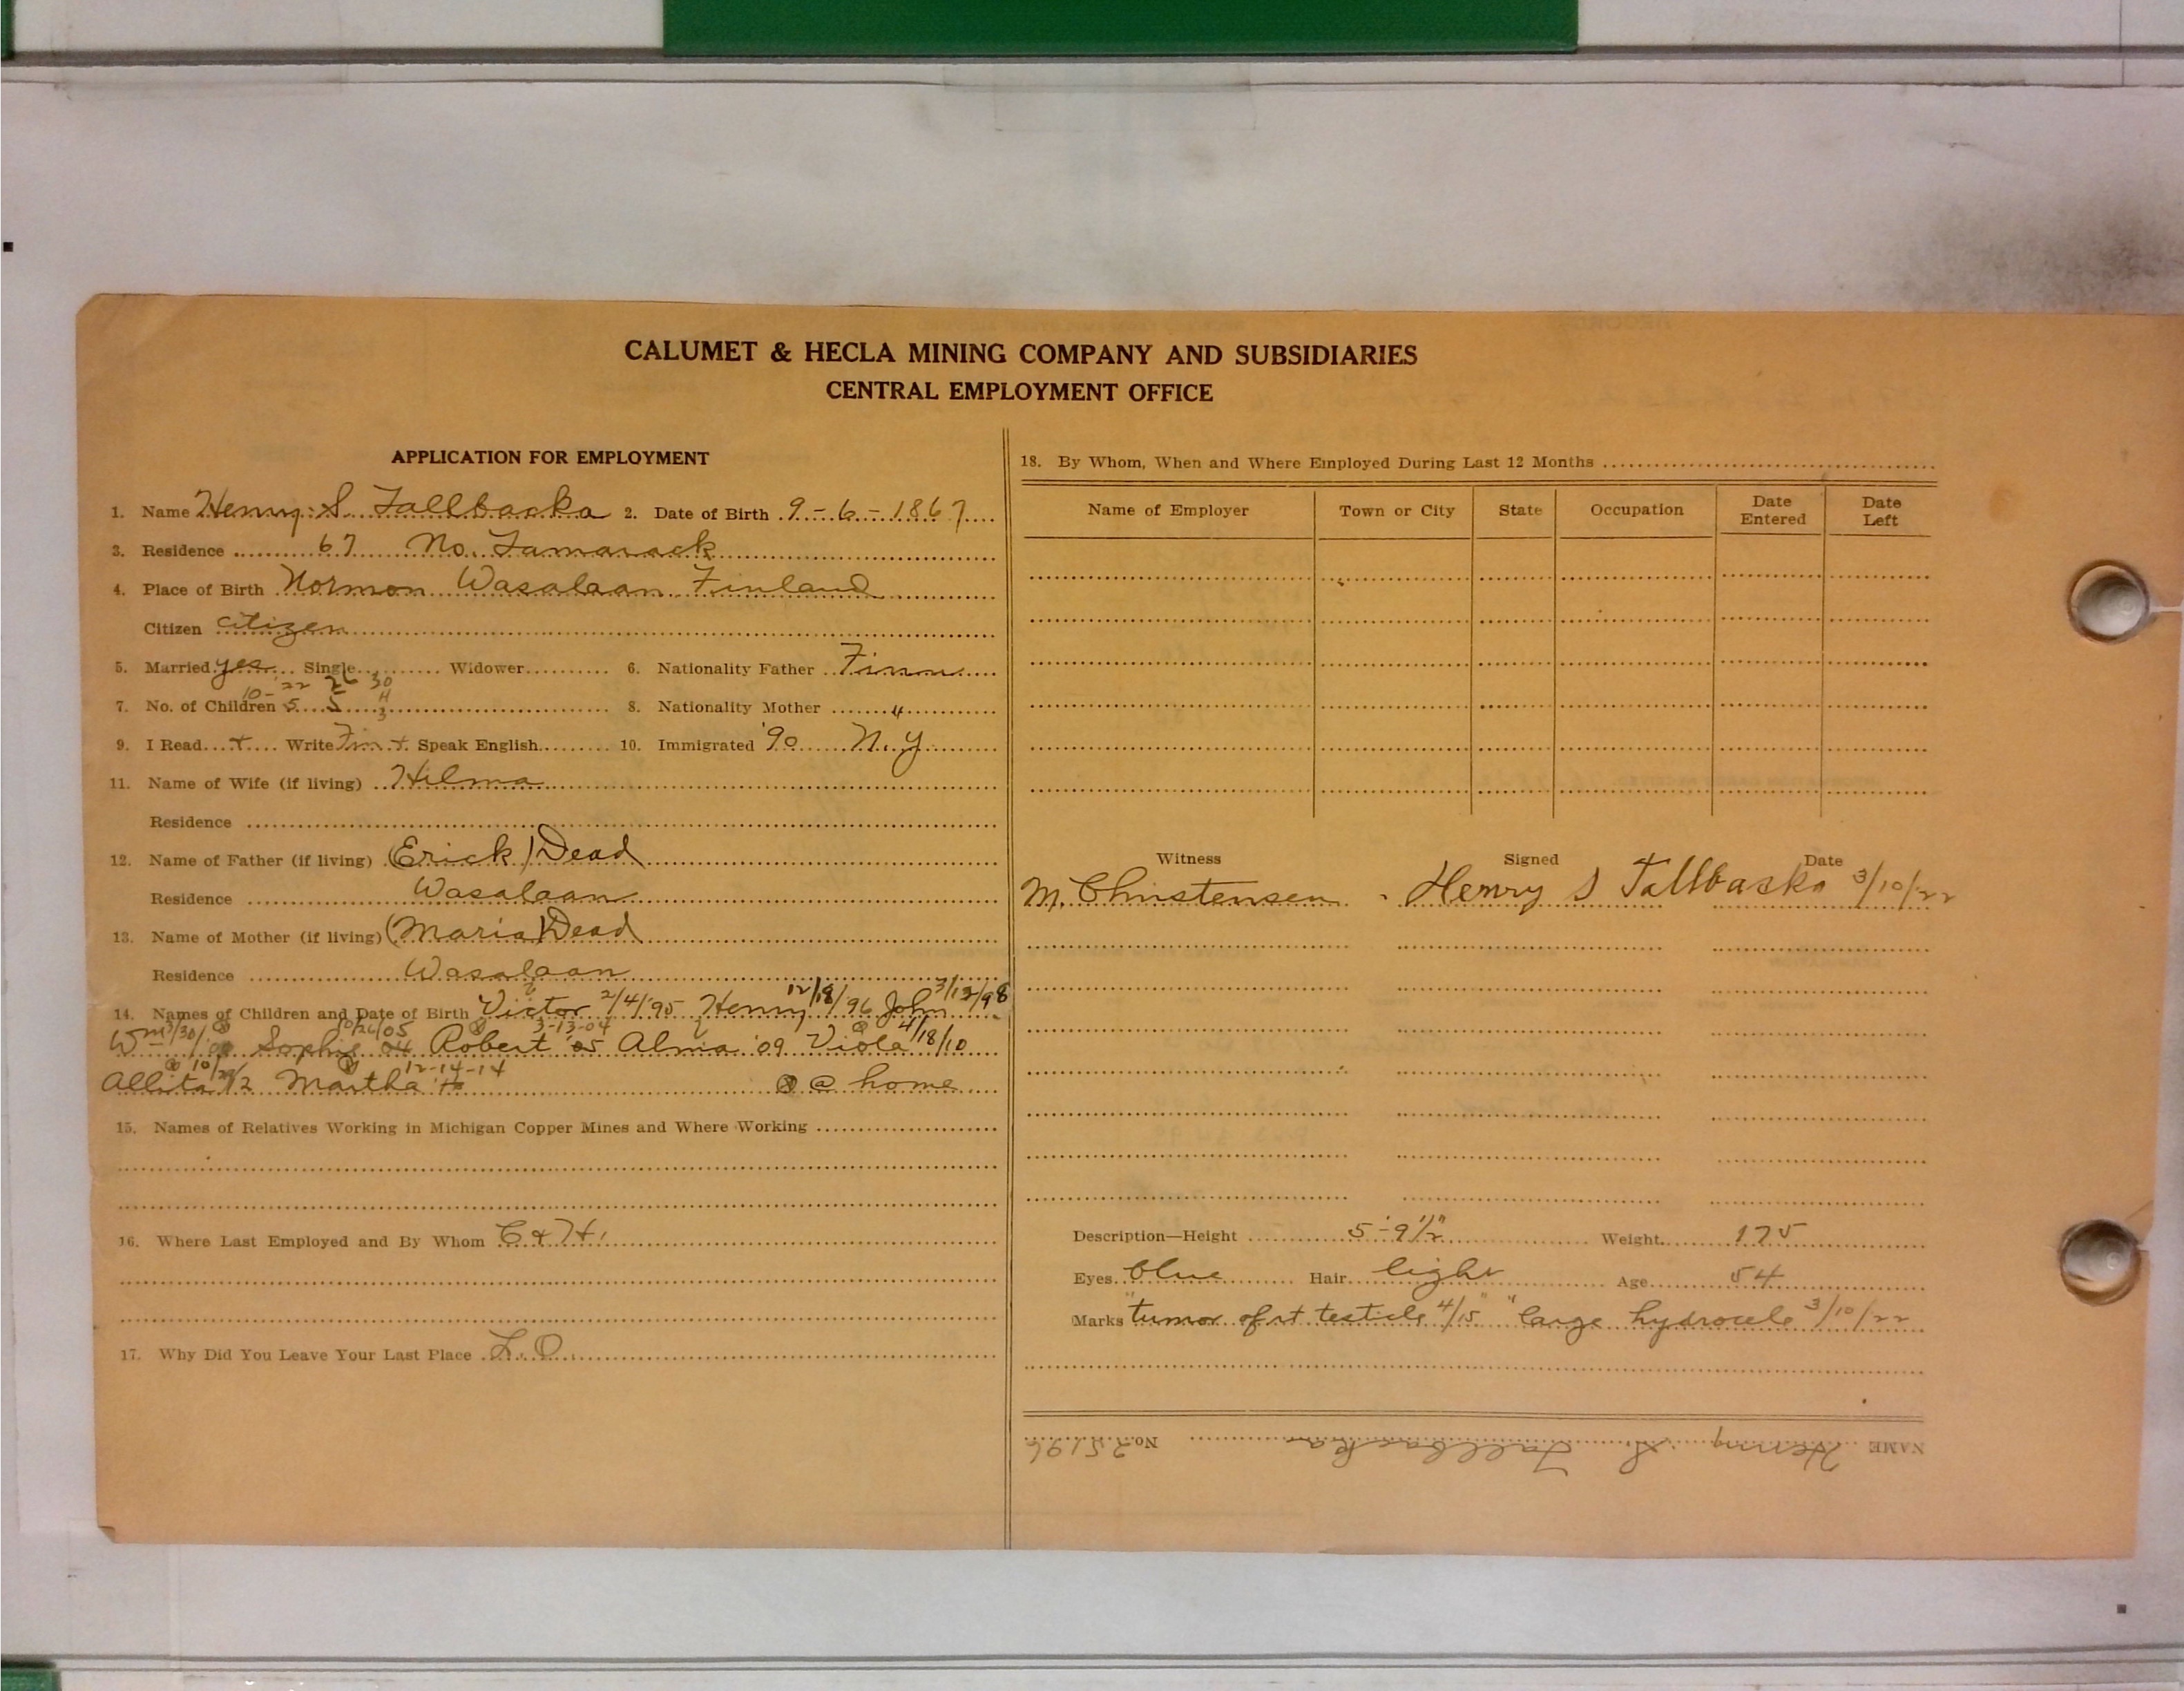 CALUMET & HECLA MINING COMPANY AND SUBSIDIARIES
CENTRAL EMPLOYMENT OFFICE
APPLICATION FOR EMPLOYMENT
1. Name Henry S. Tallbacka 2. Date of Birth 9-6-1867
3. Residence 67 No. Tamarack
4. Place of Birth Normon Wasalaan Finland
Citizen citizen
5. Married yes Single Widower 6. Nationality Father Finn
10-'22 26 30
7. No. of Children 5 5 4 3 8. Nationality Mother "
9. I Read + Write Finn + Speak English 10. Immigrated '90 N.Y.
11. Name of Wife (if living) Hilma
Residence
12. Name of Father (if living) (Erick) Dead
Residence Wasalaan
13. Name of Mother (if living) (Maria) Dead
Residence Wasalaan
14. Names of Children and Date of Birth Victor 2/4/'95 Henry 12/18/96 John 3/13/98
Wm 3/30/ Sophie 10/26/05 04 Robert 3-13-04 '05 Alma '09 Viola 4/18/10
Allita 10/29/12 Martha 12-14-14 ⊗ @ home
15. Names of Relatives Working in Michigan Copper Mines and Where Working
16. Where Last Employed and By Whom C & H.
17. Why Did You Leave Your Last Place L.O.
18. By Whom, When and Where Employed During Last 12 Months
Name of Employer Town or City State Occupation Date Entered Date Left
Witness Signed Date
M. Christensen Henry S Tallbacka 3/10/22
Description—Height 5'-9½" Weight 175
Eyes blue Hair light Age 54
Marks "tumor of rt testicle 4/15" "large hydrocele 3/10/22
NAME Henry S. Tallbacka No. 25196